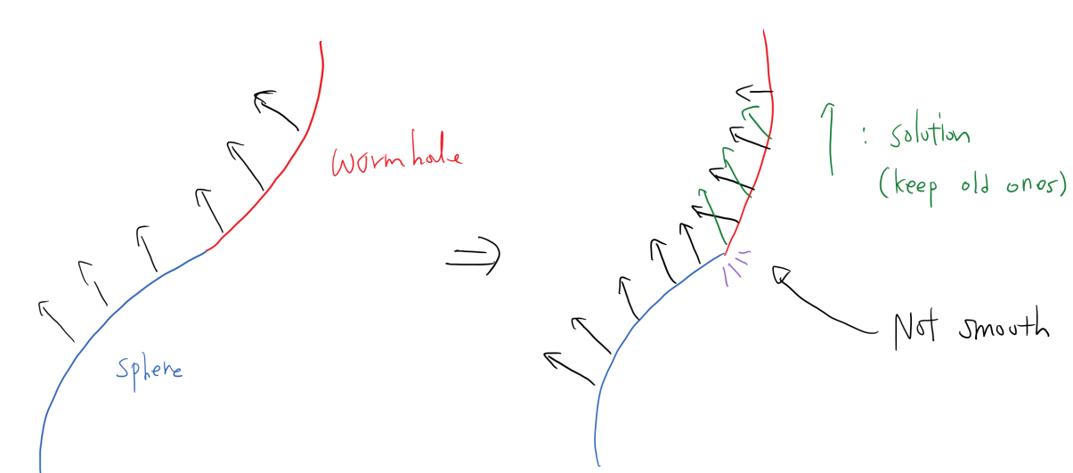 wormhole
sphere
: solution
(keep old ones)
Not smooth